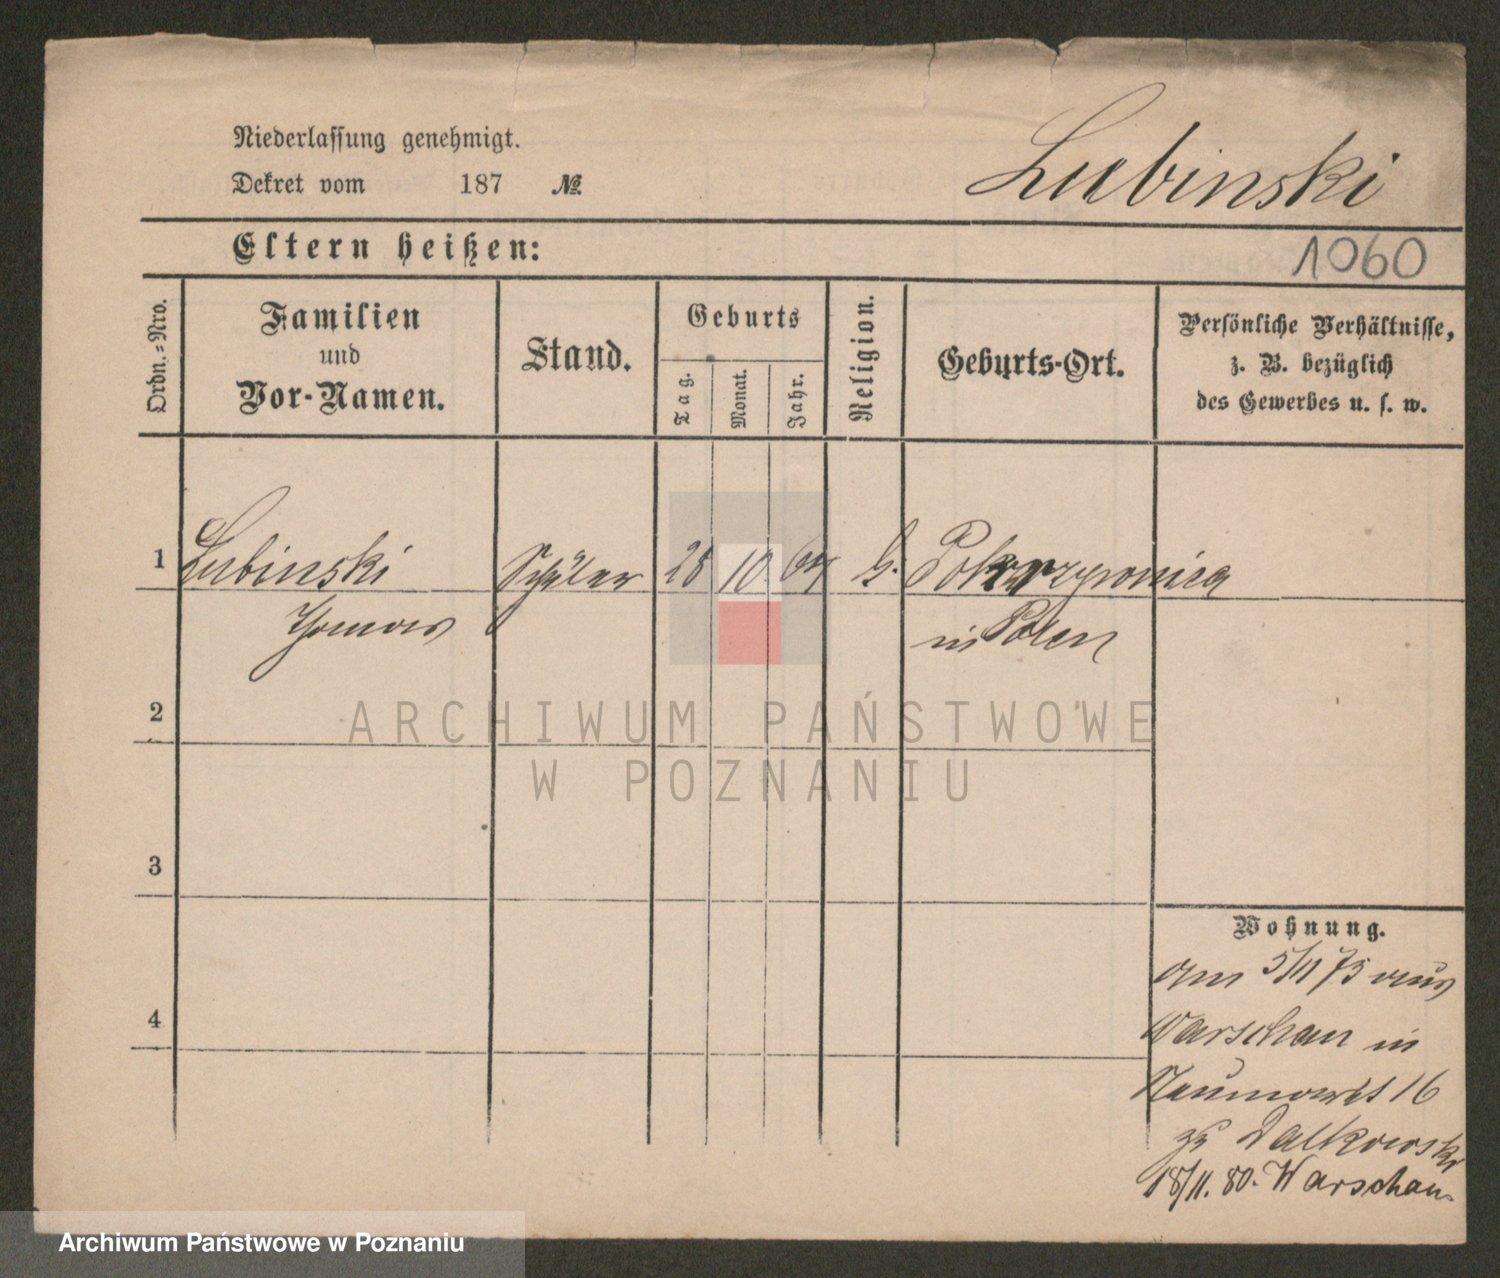 Niederlassung genehmigt.
Dekret vom 187 №
Lubinski
Eltern heißen:
1060
Ordn.-Nro.
Familien
und
Vor-Namen.
Stand.
Geburts
Tag.
Monat.
Jahr.
Religion.
Geburts-Ort.
Persönliche Verhältnisse,
z. B. bezüglich
des Gewerbes u. s. w.
1 Lubinski Schüler 28 10 64
Thomas in Polen
2
3
4
Wohnung.
am 5/11 75 aus
Warschau in
16
zu Dalkowski
18/11. 80. Warschau
ARCHIWUM PAŃSTWOWE
W POZNANIU
Archiwum Państwowe w Poznaniu